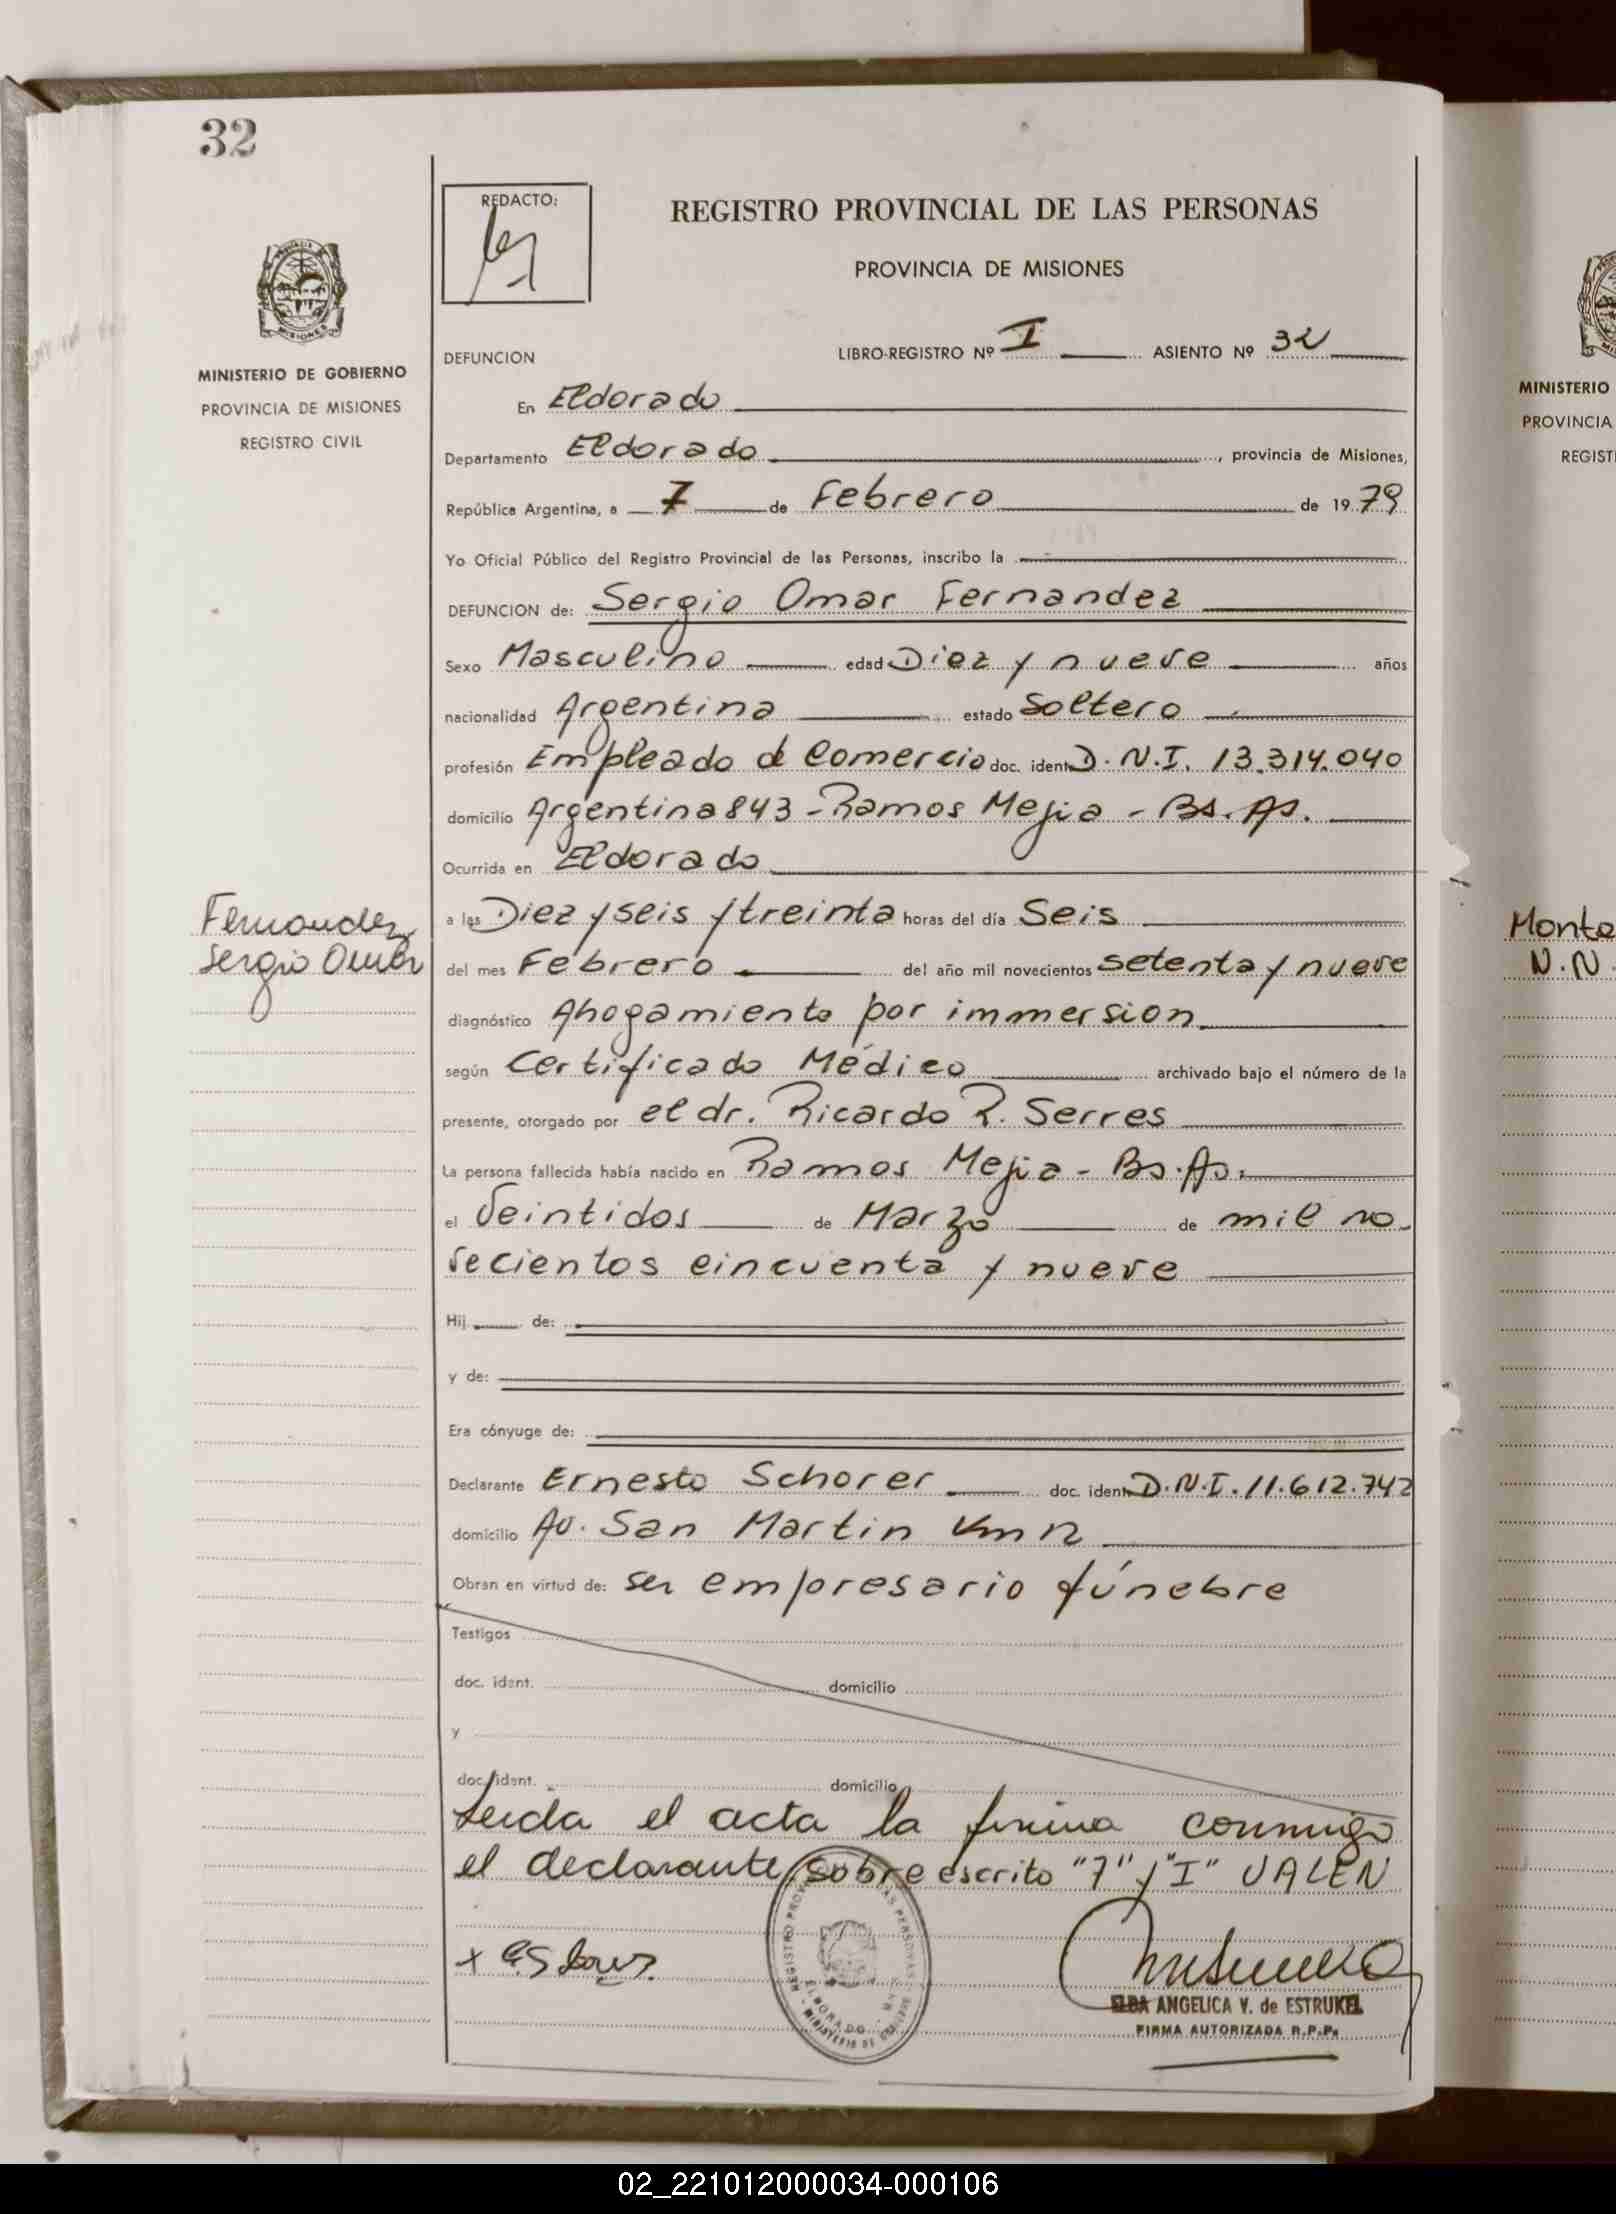 32
REDACTO:
REGISTRO PROVINCIAL DE LAS PERSONAS
PROVINCIA DE MISIONES
MISIONES
MINISTERIO DE GOBIERNO
PROVINCIA DE MISIONES
REGISTRO CIVIL
DEFUNCION LIBRO-REGISTRO Nº I ASIENTO Nº 32
En Eldorado
Departamento Eldorado, provincia de Misiones,
República Argentina, a 7 de Febrero de 1979
Yo Oficial Público del Registro Provincial de las Personas, inscribo la
DEFUNCION de: Sergio Omar Fernandez
Sexo Masculino edad Diez y nueve años
nacionalidad Argentina estado Soltero
profesión Empleado de Comercio doc. ident. D.N.I. 13.314.040
domicilio Argentina 843 - Ramos Mejia - Bs. As.
Ocurrida en Eldorado
a las Diez y seis y treinta horas del día Seis
del mes Febrero del año mil novecientos setenta y nueve
diagnóstico Ahogamiento por immersion
según Certificado Médico archivado bajo el número de la
presente, otorgado por el dr. Ricardo R. Serres
La persona fallecida había nacido en Ramos Mejia - Bs. As.
el Veintidos de Marzo de mil no-
vecientos cincuenta y nueve
Hij de:
y de:
Era cónyuge de:
Declarante Ernesto Schorer doc. ident. D.N.I. 11.612.742
domicilio Av. San Martin Km 12
Obran en virtud de: ser empresario fúnebre
Testigos
doc. ident. domicilio
y
doc. ident. domicilio
Leida el acta la firma conmigo
el declarante. Sobre escrito "7" y "I" VALEN
ELBA ANGELICA V. de ESTRUKEL
FIRMA AUTORIZADA R.P.P.
Fernandez
Sergio Omar
MINISTERIO
PROVINCIA
REGIST
N.N.
02_221012000034-000106